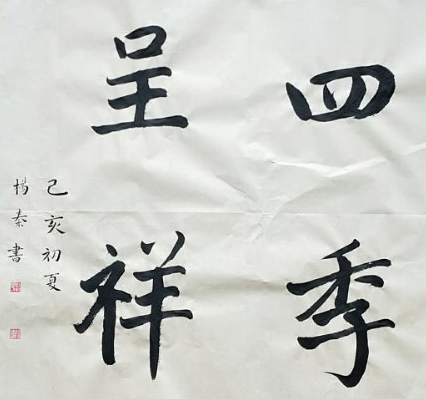 四季
呈祥
己亥初夏
杨秦書